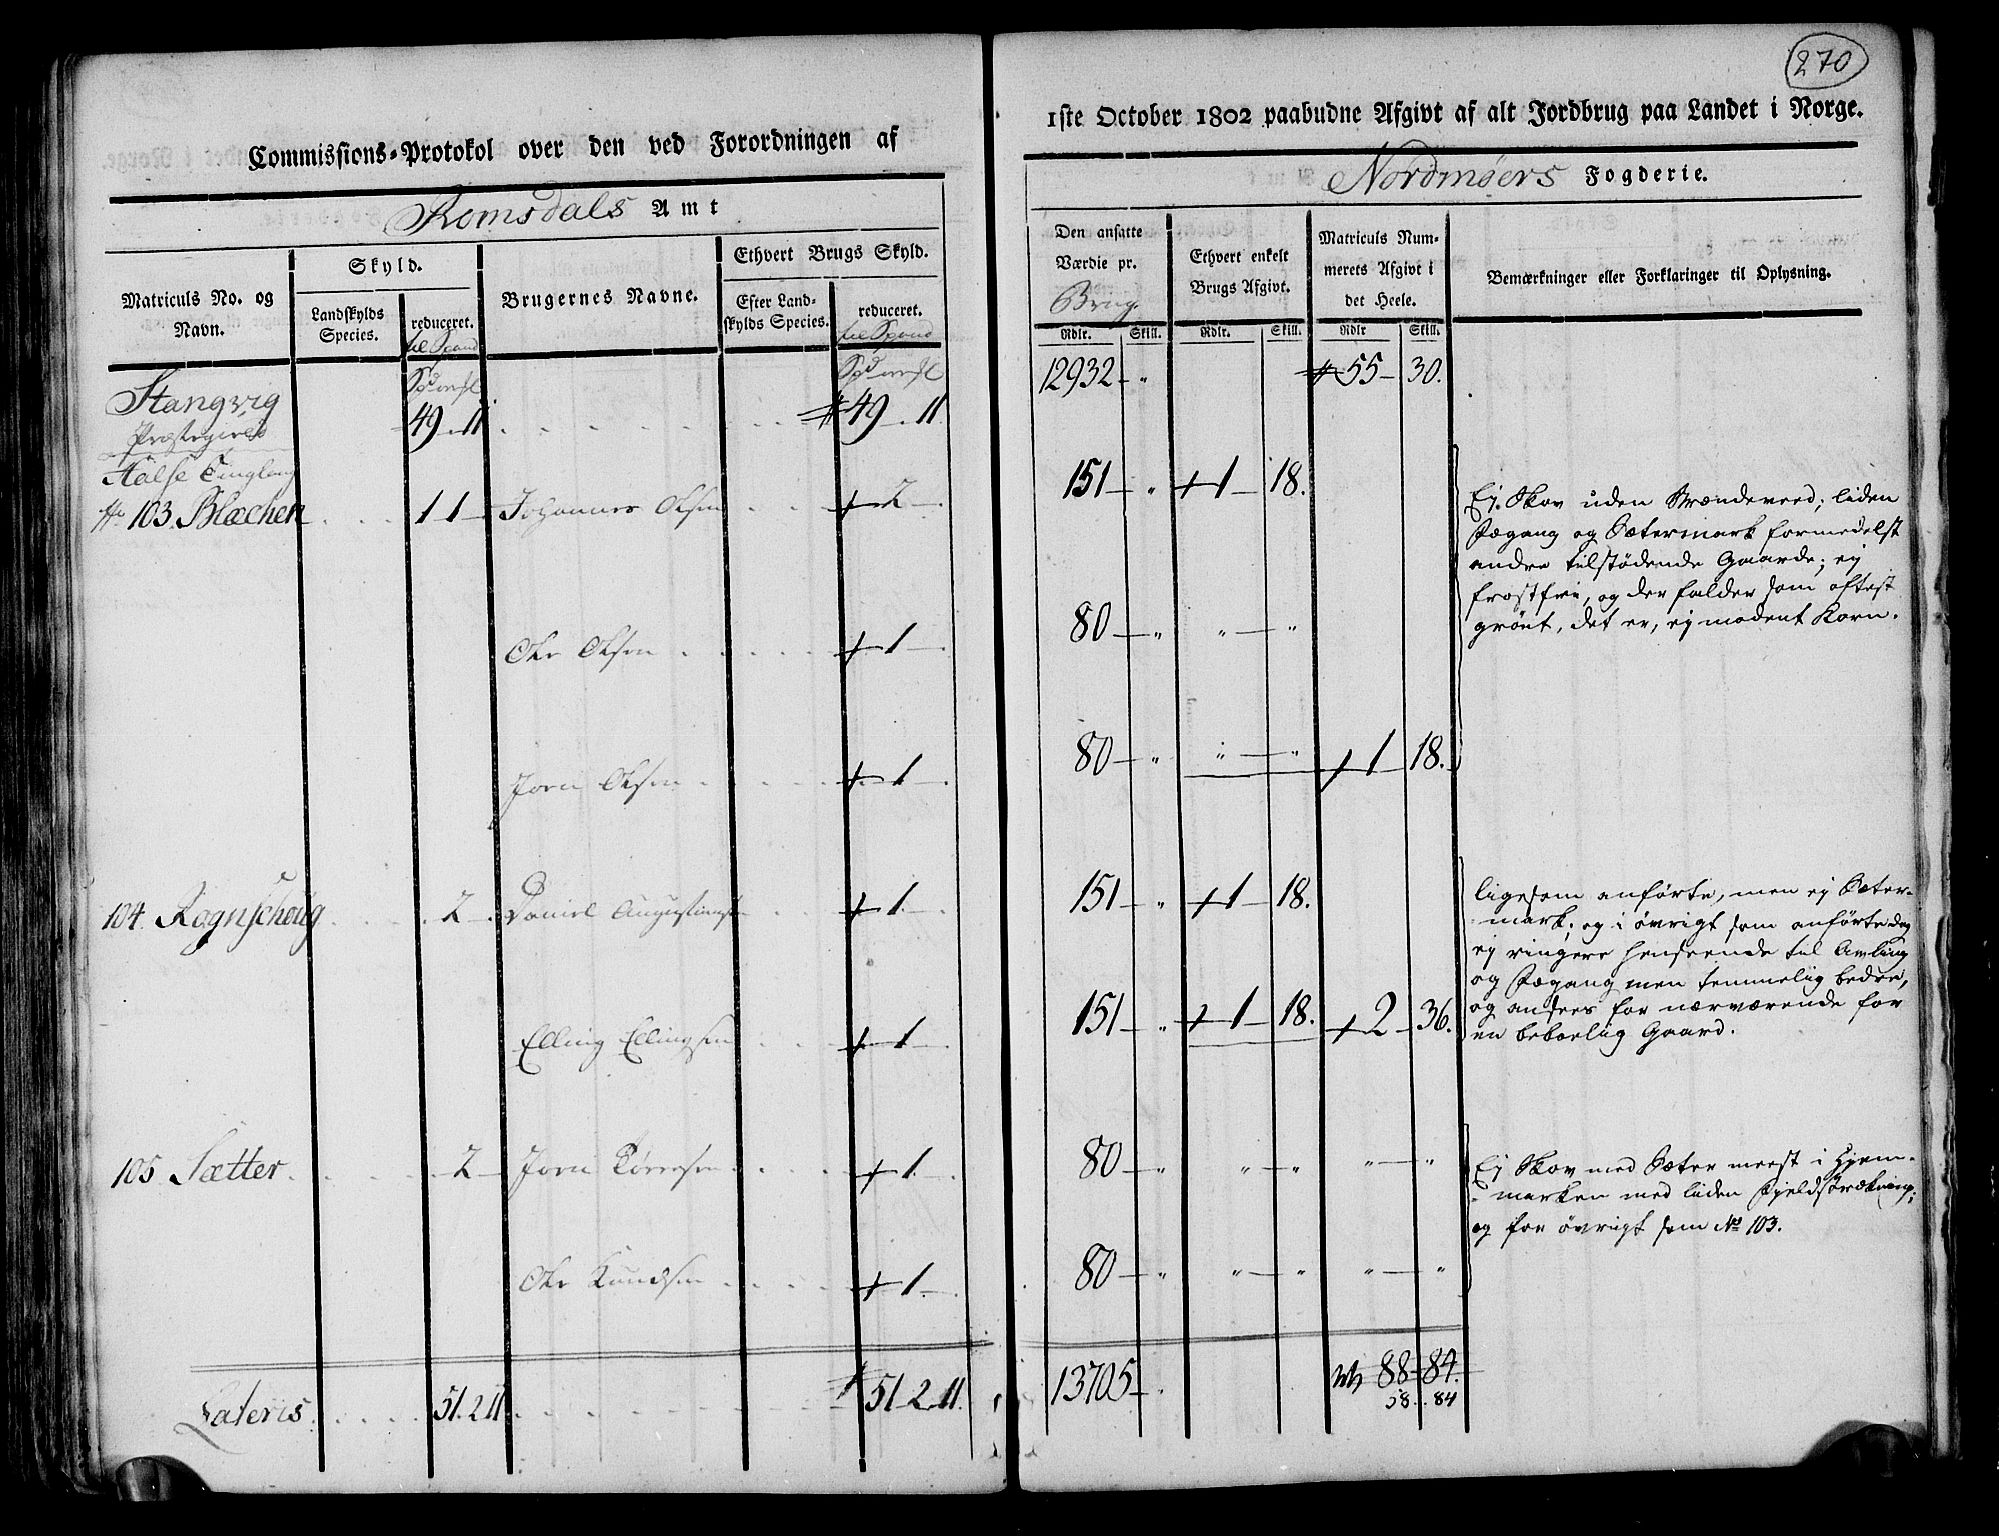 270
Commissions-Protokol over den ved Forordningen af
1ste October 1802 paabudne Afgivt af alt Jordbrug paa Landet i Norge.
Romsdals Amt
Nordmøers Fogderie.
Matriculs No. og Navn.
Skyld.
Landskylds Species.
reduceret.
til Spand
Brugernes Navne.
Ethvert Brugs Skyld.
Efter Landskylds Species.
reduceret.
til Spand
Den ansatte Værdie pr.
Brug.
Ethvert enkelt Brugs Afgivt.
Matriculs Nummerets Afgivt i det Heele.
Bemærkninger eller Forklaringer til Oplysning.
Rdlr. Skill. Rdlr. Skill. Rdlr Skill.
Stangvig 49 . 11 49 . 11 12932 " 55 30.
Præstegield
Halse Tinglaug
No 103. Blæchen 1 1 Johannes Olsen 2 151 " 1 18.
Ej Skov uden Brændeveed; liden
Fægang og Sætermark formedelst
andre tilstødende Gaarde; ej
frostfri, og der falder som oftest
grönt, det er, ej modent Korn.
Ole Olsen 1 80 " " "
Jorn Olsen 1 80 " " " 1 18.
104. Rognschoug 2 Daniel Augustinsen 1 151 " 1 18.
Elling Ellingsen 1 151 " 1 18. 2 36.
ligesom anførte, men ej Sæter-
mark; og i øvrigt som anførte dog
ej ringere henseende til Avling
og Fægang men temmelig bedre,
og ansees for nærværende for
en beboelig Gaard.
105 Sætter 2 Jorn 1 80 " " " " "
Ole Knudsen 1 80 " " " " "
Ej Skov med Sæter meest i Hjem-
marken med liden Fjeldstrækning;
og for øvrigt som No 103.
Lateris 51. 2 11 51 2 11. 13705 88 84.
58 . 84